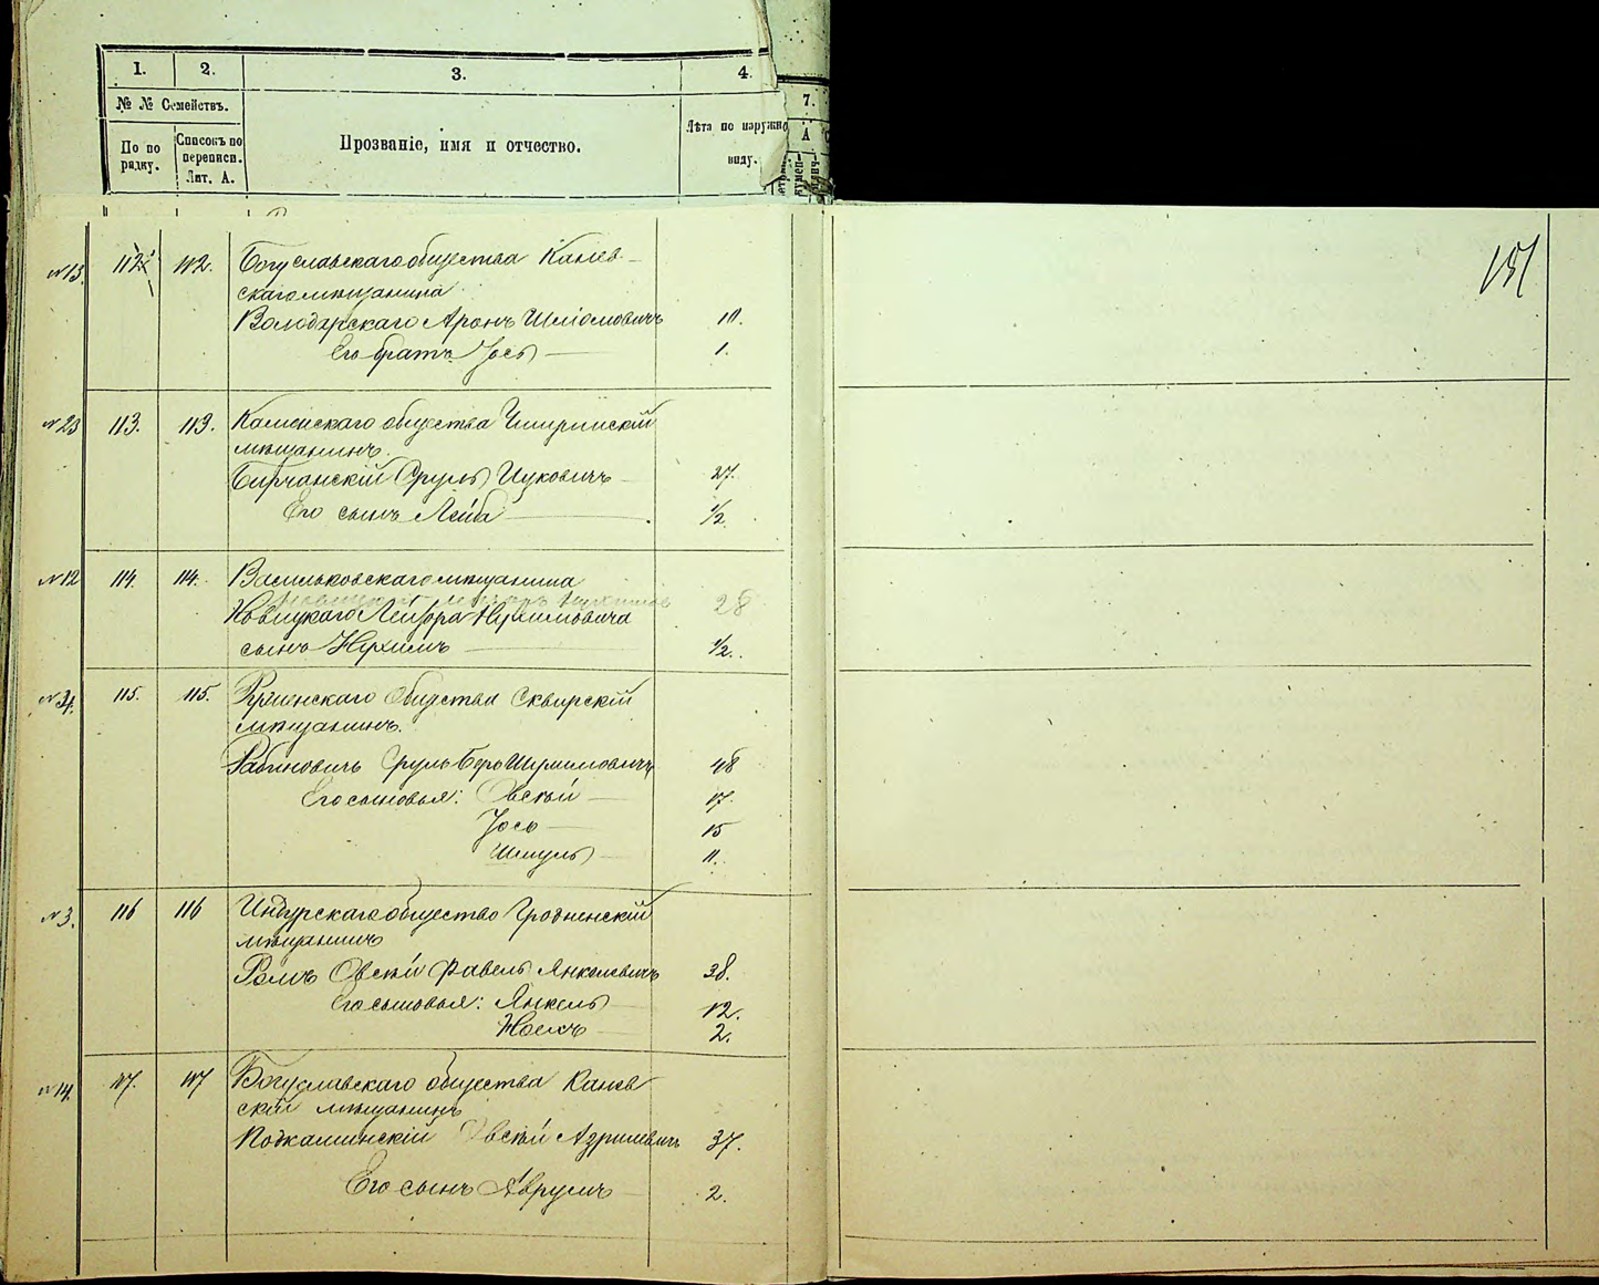 1. 2. 3. 4. 7.
№ № Семействъ.
По по рядку.
Списокъ по переписи. Лит. А.
Прозваніе, имя и отчество.
Лѣта по наружно виду.
А
151
№13 112 112. Богуславскаго общества Канев-
скаго мѣщанина
Володарскаго Аронъ Шліомовичъ
Его братъ Іось 1.
№23 113. 113. Каменскаго общества Чигиринскій
мѣщанинъ.
Бирчанскій Сруль Ицковичъ 27.
Его сынъ Лейба 1/2.
№12 114. 114. Васильковскаго мѣщанина
Новицкаго Лейзора Нухимовича 28
сынъ Нухимъ 1/2.
115. 115. Ружинскаго Общества Сквирскій
мѣщанинъ.
Рабиновичъ Сруль Беръ 48
Его сыновья: Овсѣй 17.
Іось 15
Шмуль 11.
№3. 116 116 Индурскаго общество Гродненскій
мѣщанинъ
Ромъ Овсѣй Фавель Янкелевичъ 38.
Его сыновья: Янкель 12.
2.
№14. 117. 117 Богуславскаго общества Канев
скій мѣщанинъ
Подкаминскій Овсѣй Азрилевичъ 37.
Его сынъ Аврумъ 2.